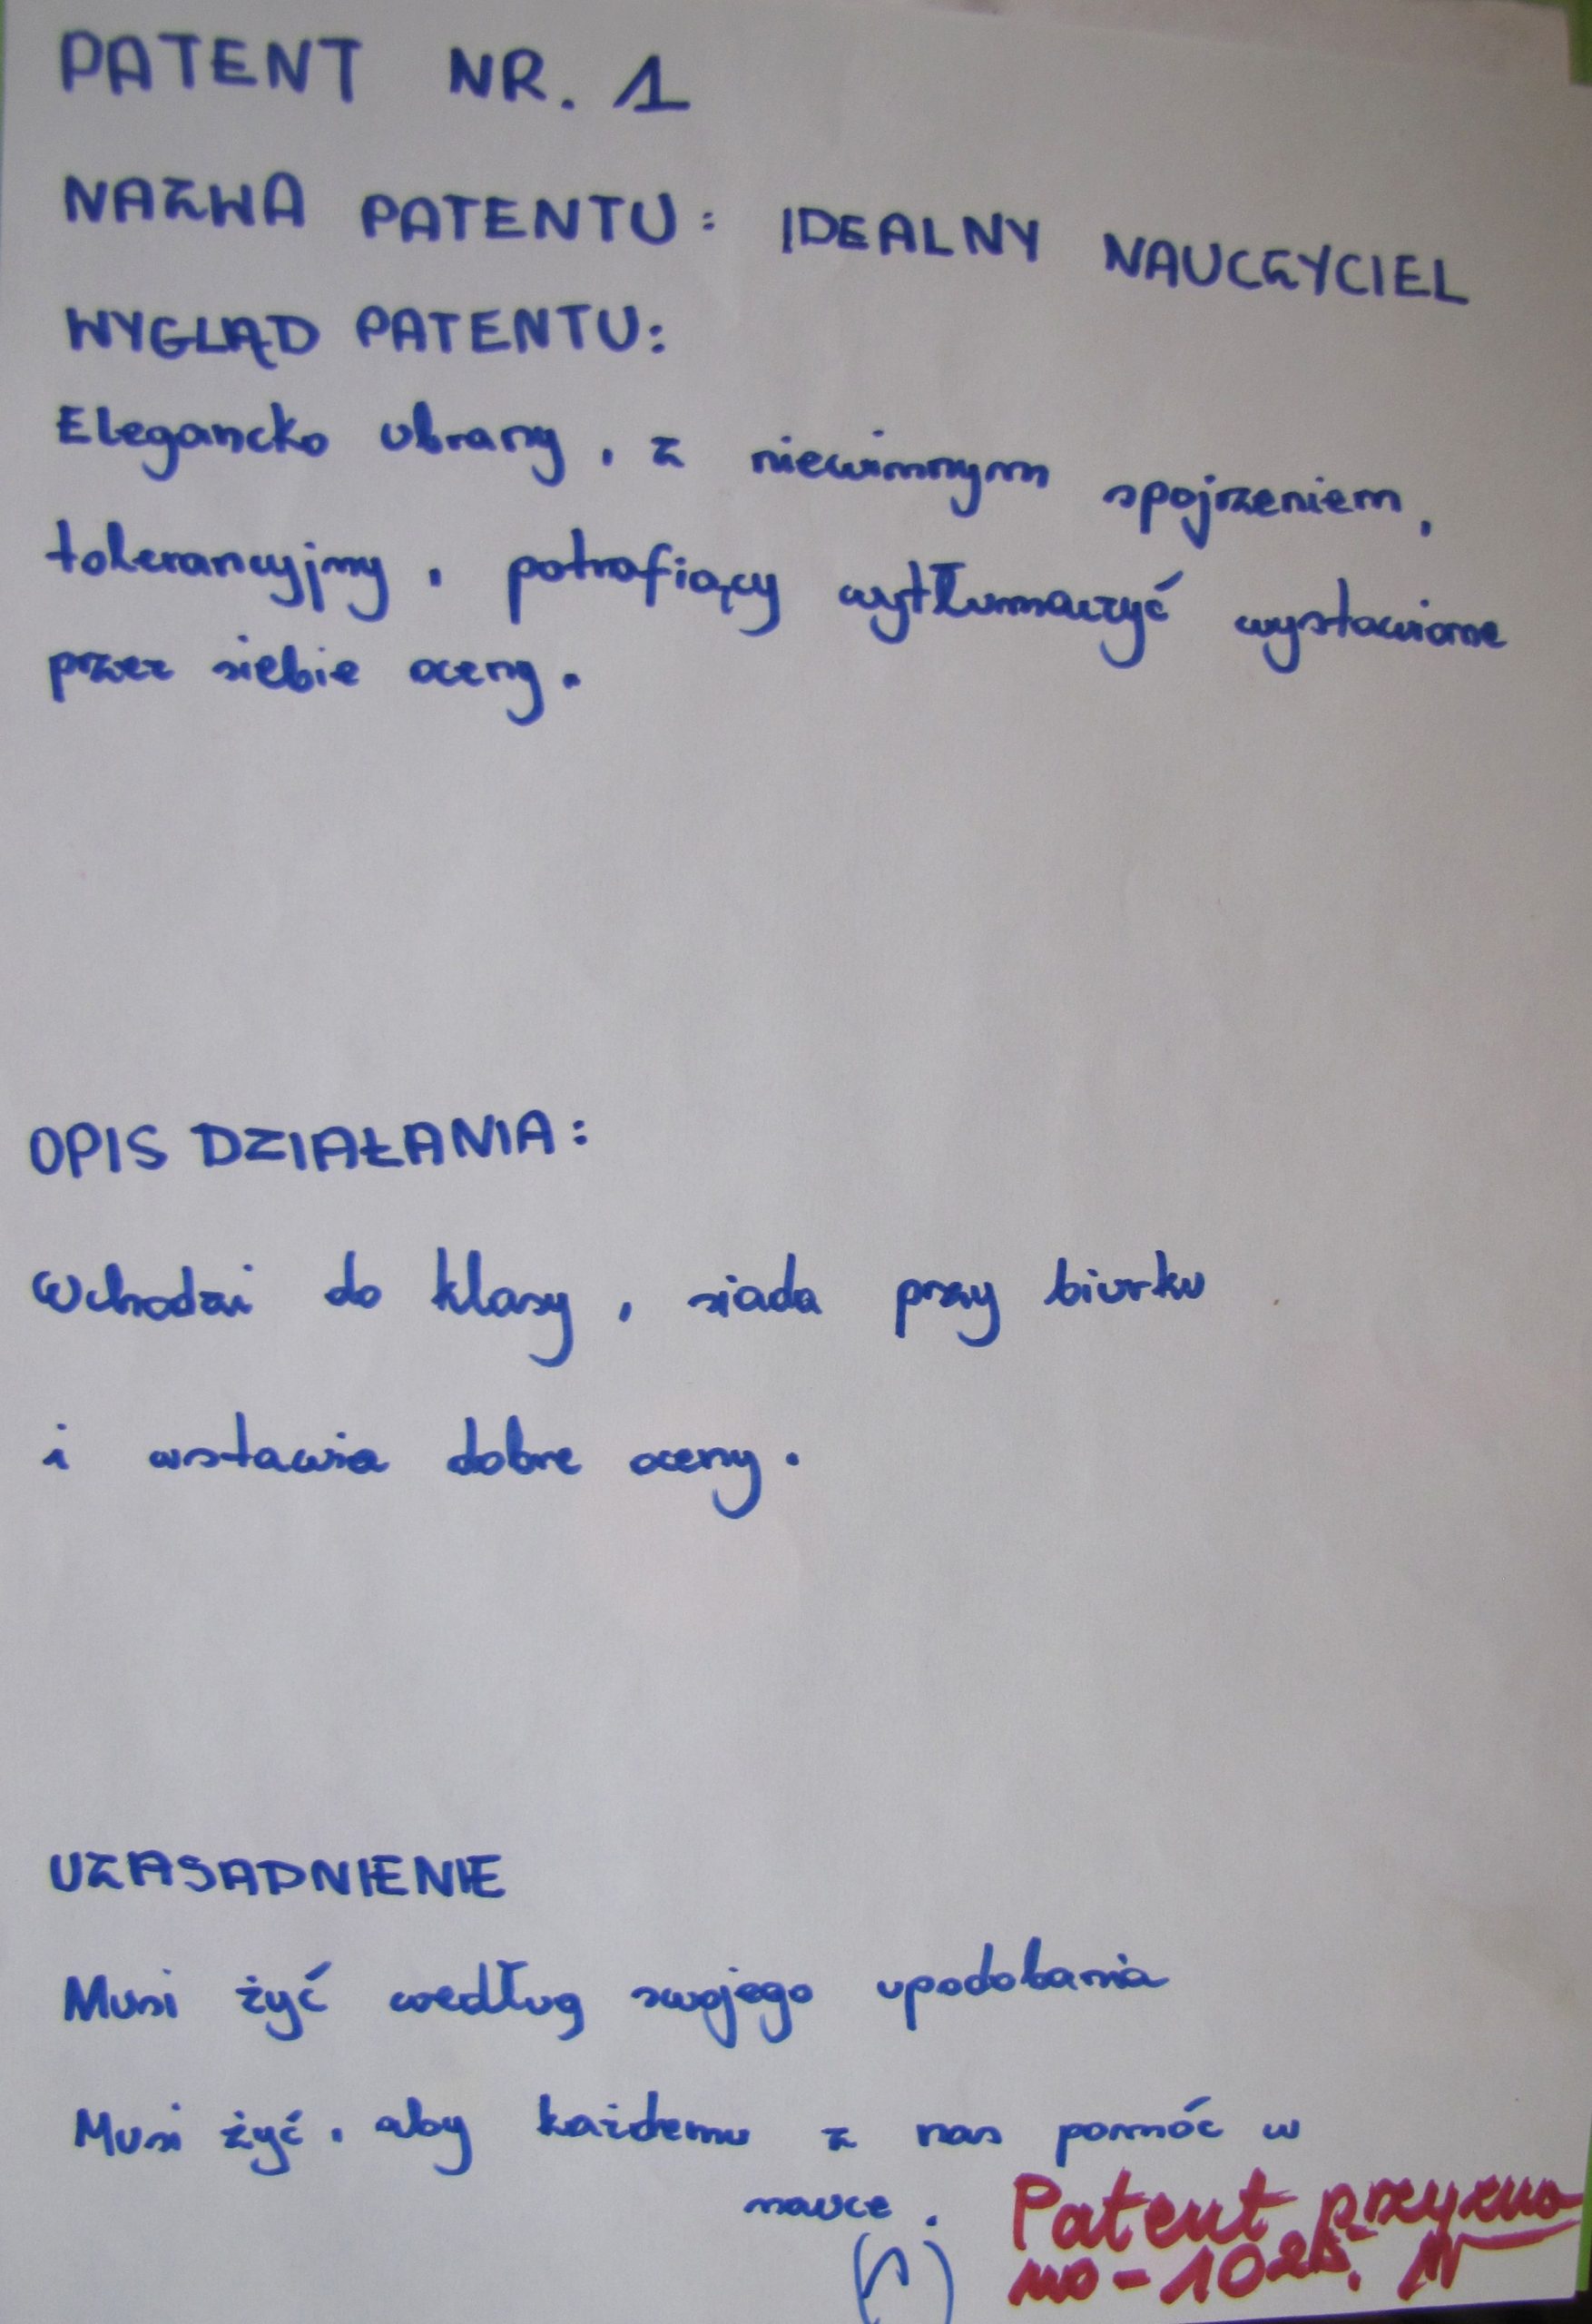 PATENT NR. 1
NAZWA PATENTU: IDEALNY NAUCZYCIEL
WYGLĄD PATENTU:
Elegancko ubrany, z niewinnym spojrzeniem,
tolerancyjny, potrafiący wytłumaczyć wystawione
przez siebie oceny.
OPIS DZIAŁANIA:
Wchodzi do klasy, siada przy biurku
i wstawia dobre oceny.
UZASADNIENIE
Musi żyć według swojego upodobania
Musi żyć, aby każdemu z nas pomóc w
nauce.
Patent przyzna
no - 10